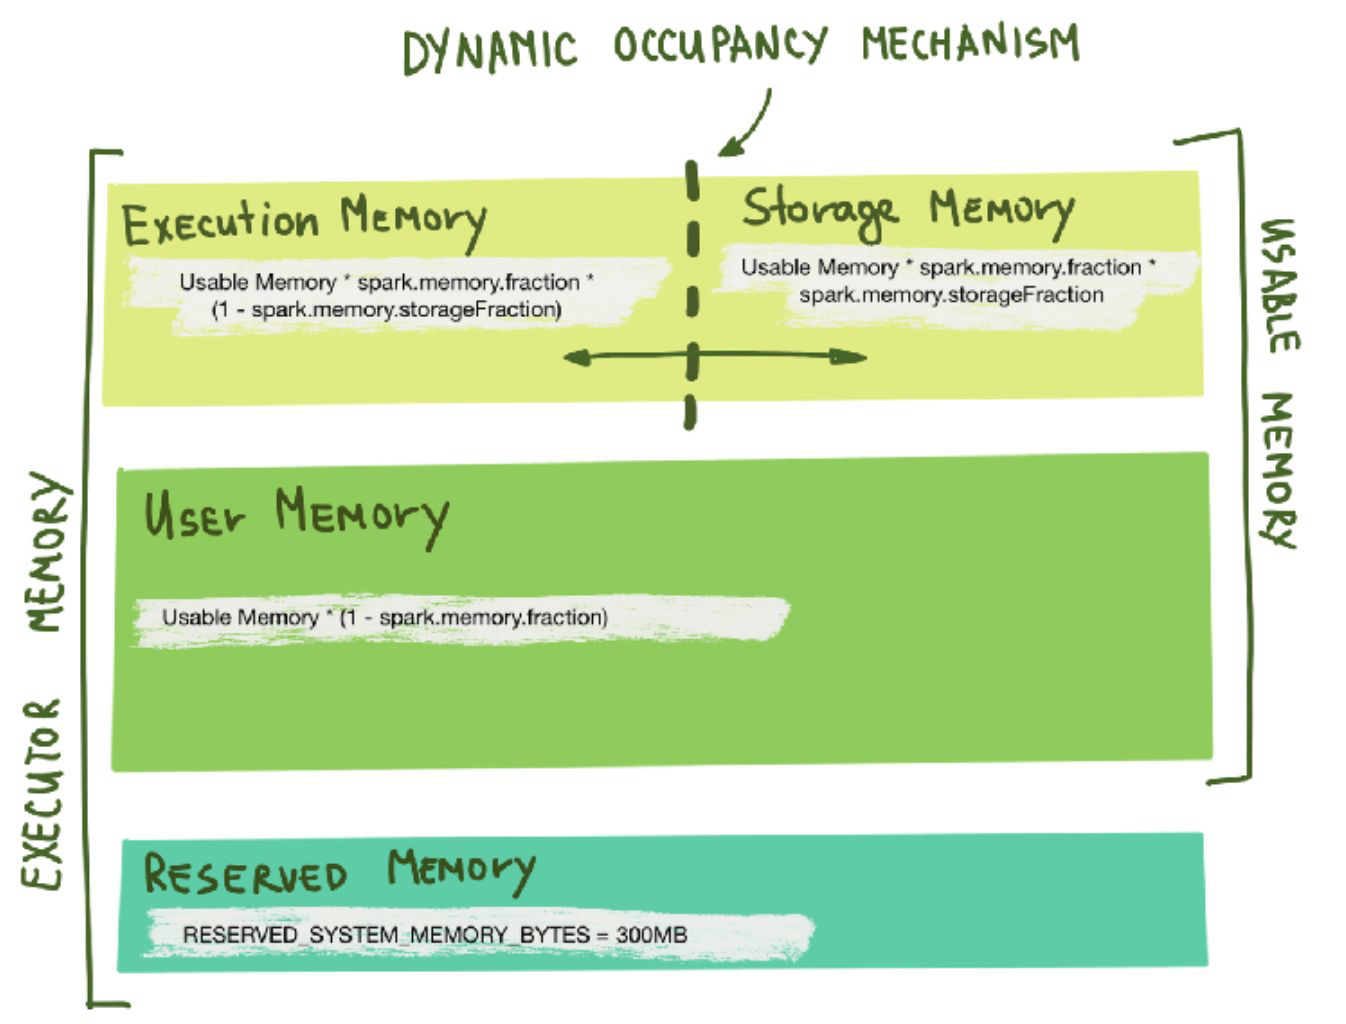 DYNAMIC OCCUPANCY MECHANISM
Execution Memory
Usable Memory * spark.memory.fraction *
(1 - spark.memory.storageFraction)
Storage Memory
Usable Memory * spark.memory.fraction *
spark.memory.storageFraction
USABLE MEMORY
User Memory
Usable Memory * (1 - spark.memory.fraction)
EXECUTOR MEMORY
RESERVED MEMORY
RESERVED_SYSTEM_MEMORY_BYTES = 300MB